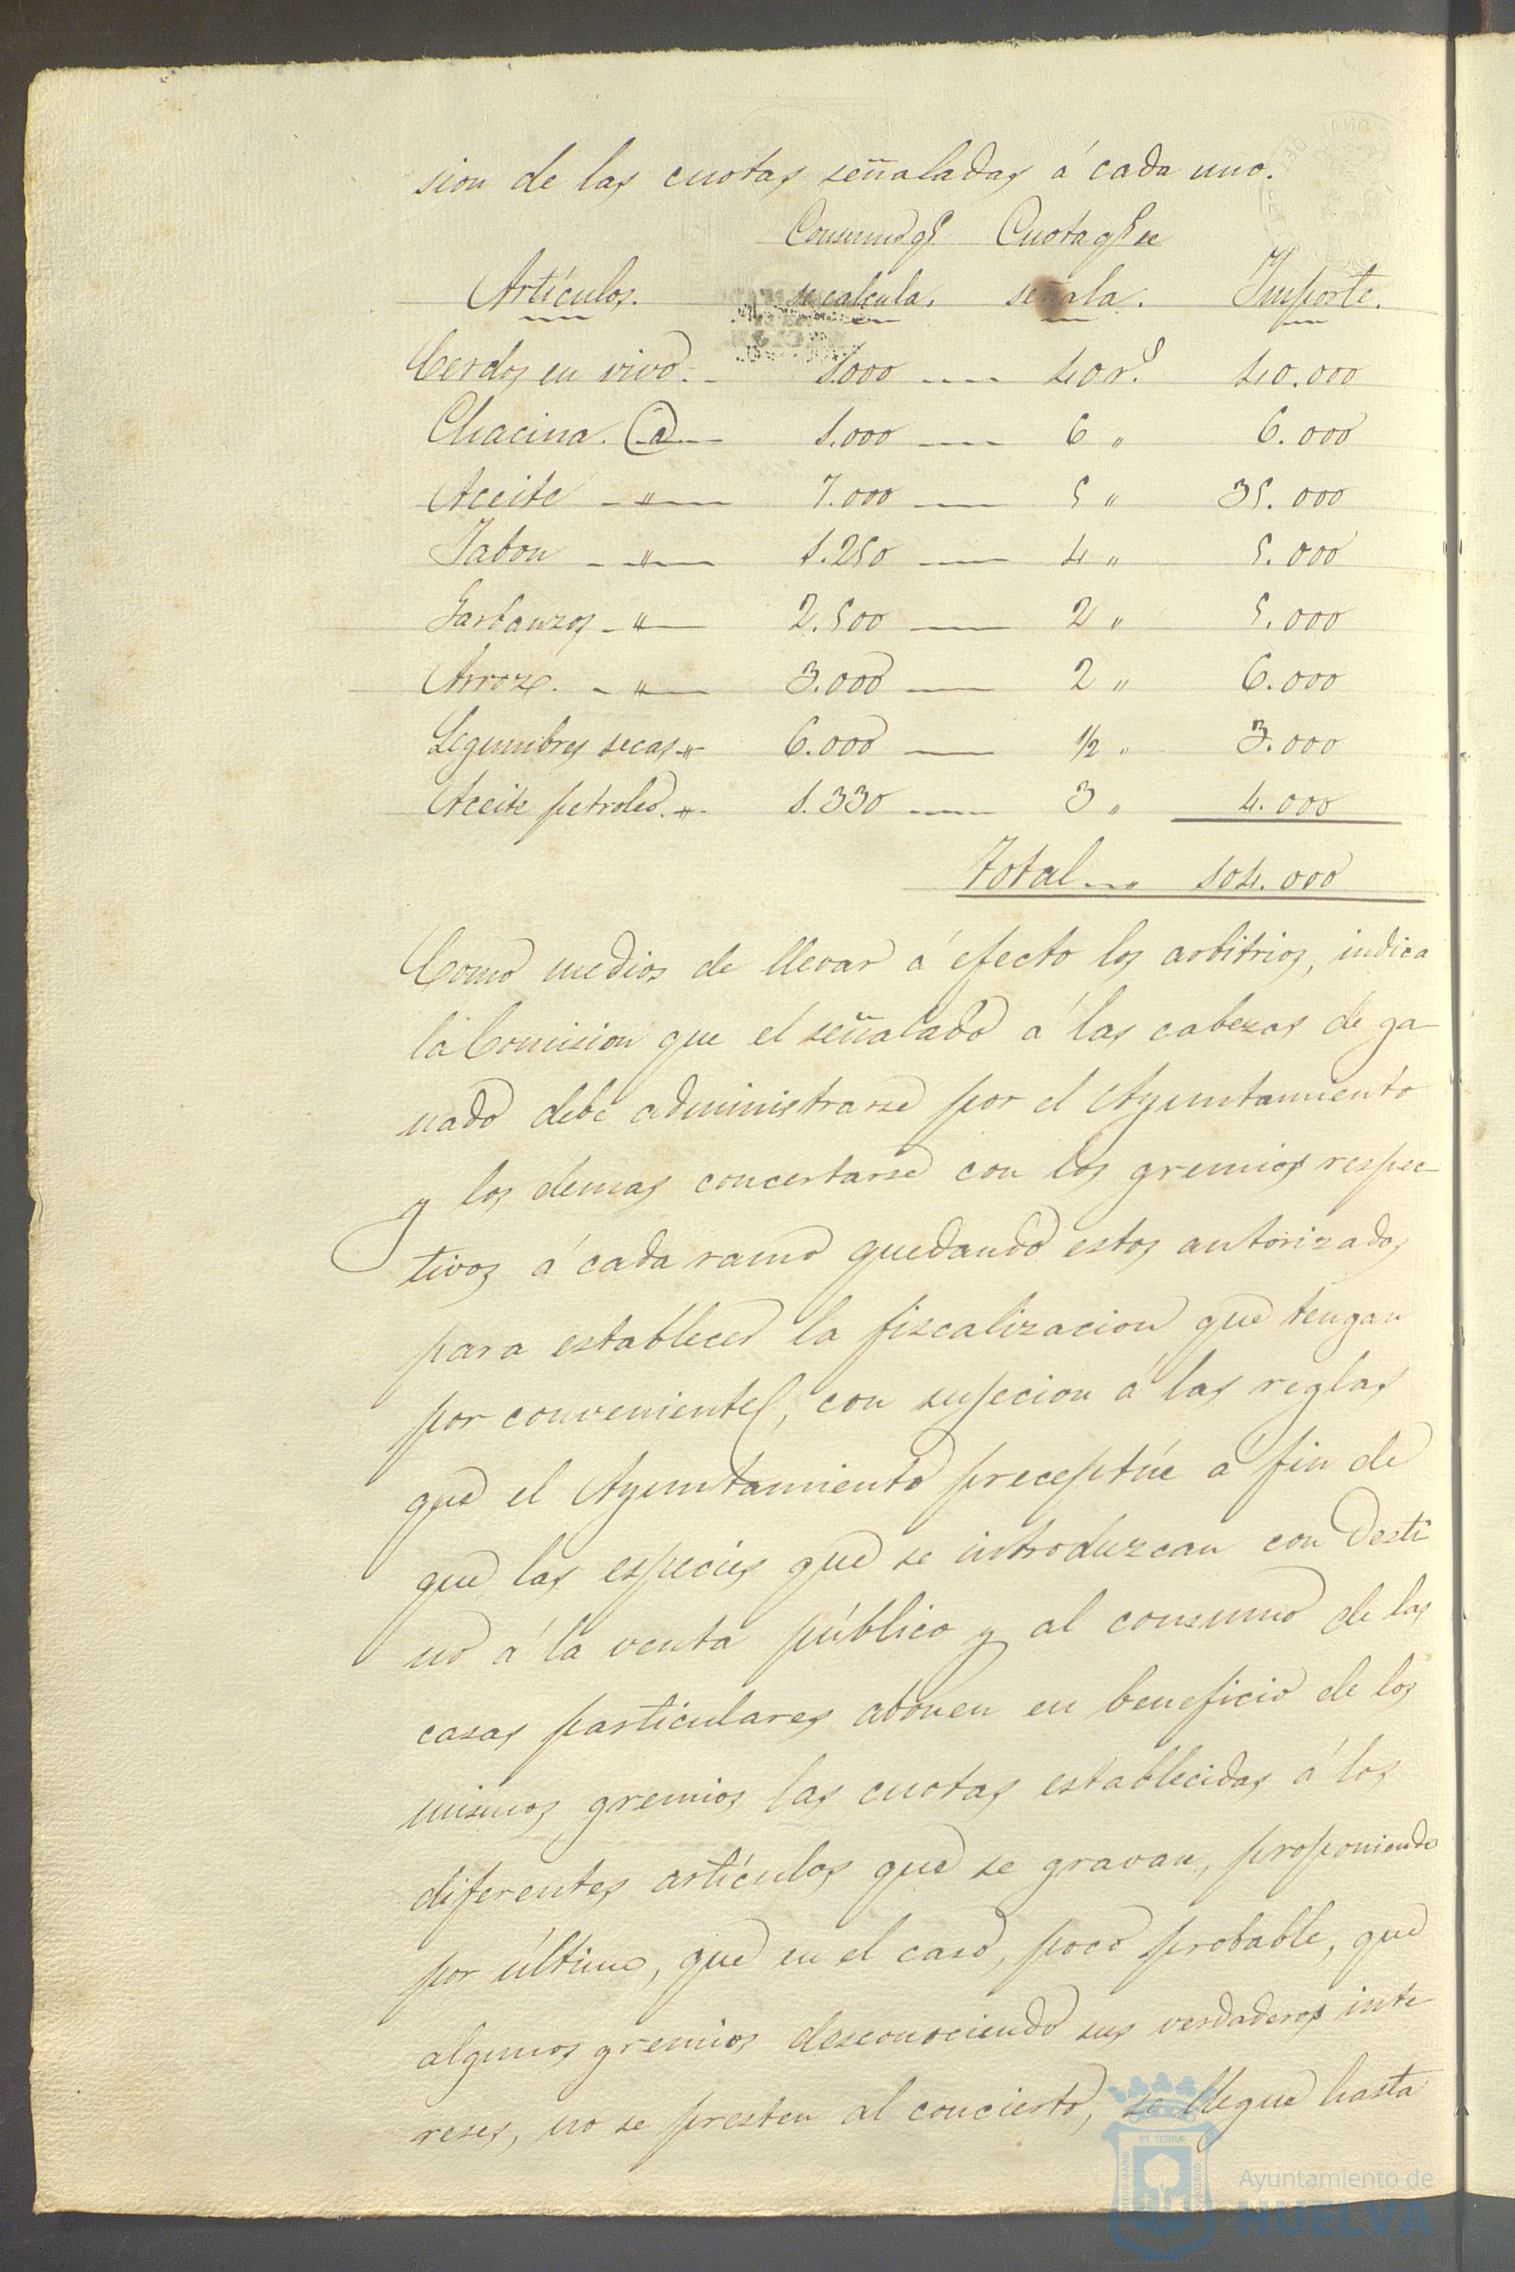 sion de las cuotas señaladas á cada uno.
Consumo qe Cuota qe se
Artículos. se calcula. señala. Importe.
Cerdos en vivo. 1.000 40 rs. 40.000
Chacina. @ 1.000 6 " 6.000
Aceite " 7.000 5 " 35.000
Jabon " 1.250 4 " 5.000
Garbanzos " 2.500 2 " 5.000
Arroz. " 3.000 2 " 6.000
Legumbres secas " 6.000 1/2 " 3.000
Aceite petroleo. " 1.330 3 " 4.000
Total " 104.000
Como medios de llevar á efecto los arbitrios, indica
la Comision que el señalado á las cabezas de ga-
nado debe administrarse por el Ayuntamiento
y los demas concertarse con los gremios respec-
tivos á cada ramo quedando estos autorizados
para establecer la fiscalizacion que tengan
por conveniente, con sujecion á las reglas
que el Ayuntamiento preceptúe á fin de
que las especies que se introduzcan con desti
no á la venta público y al consumo de las
casas particulares abonen en beneficio de los
mismos gremios las cuotas establecidas á los
diferentes artículos que se gravan, proponiendo
por último, que en el caso, poco probable, que
algunos gremios desconociendo sus verdaderos inte-
reses, no se presten al concierto, se llegue hasta
Ayuntamiento de
HUELVA